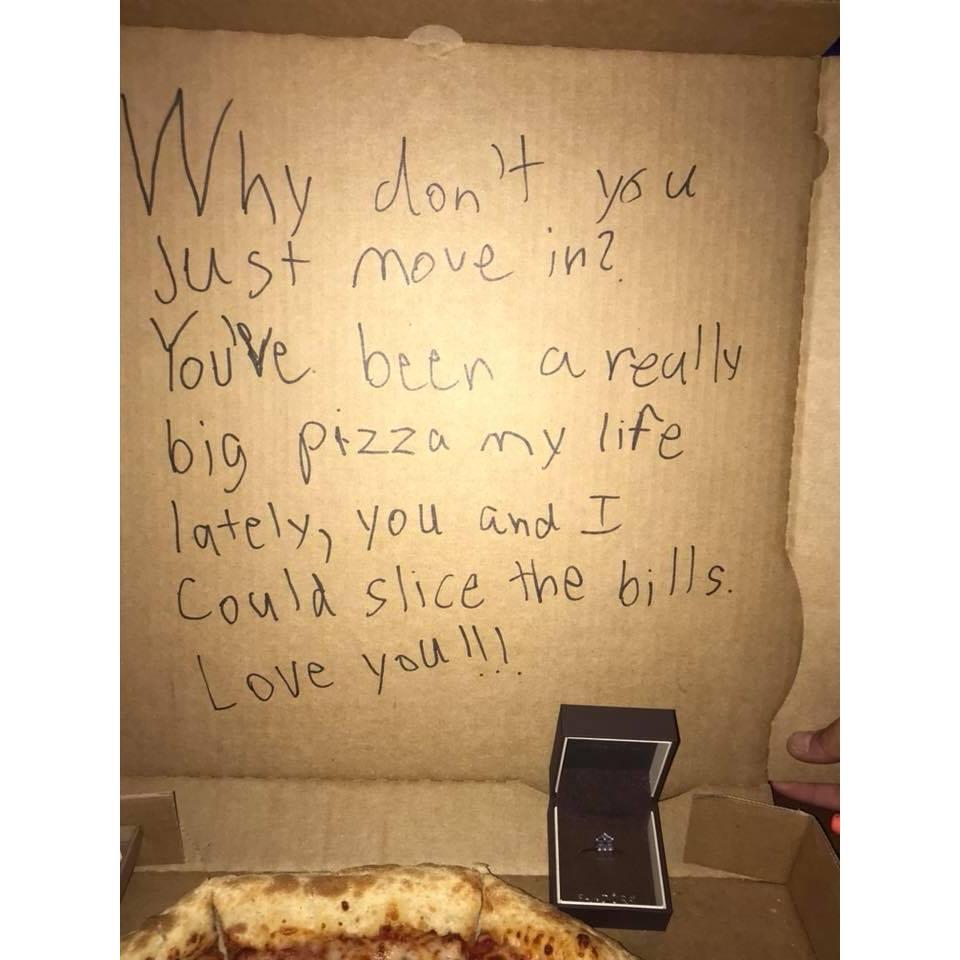 Why don't you
Just move in?
You've been a really
big pizza my life
lately, you and I
Could slice the bills.
Love you!!!